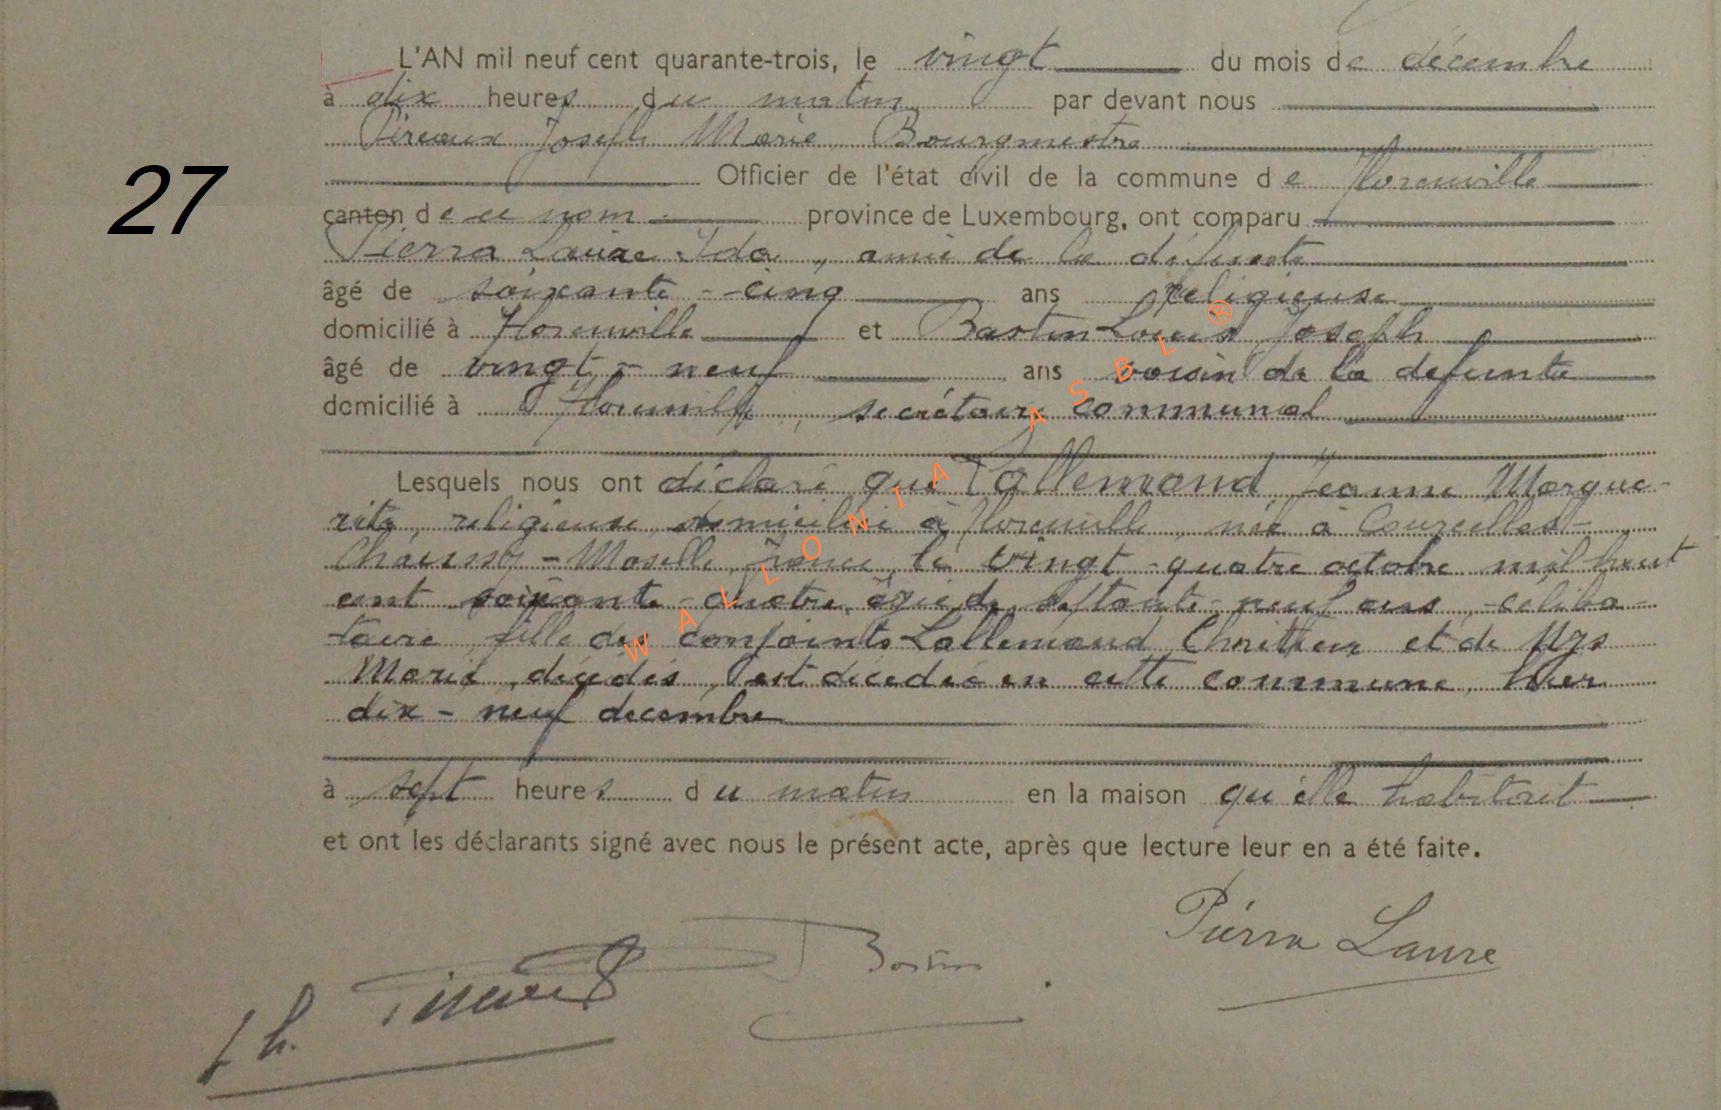 L'AN mil neuf cent quarante-trois, le vingt du mois de décembre
à dix heures du matin par devant nous
Pireaux Joseph Marie, Bourgmestre
27
Officier de l'état civil de la commune de Florenville
canton de ce nom province de Luxembourg, ont comparu
Pierra Laure Ida, amie de la défunte
âgé de soixante-cinq ans religieuse
domicilié à Florenville et Bastin Louis Joseph
âgé de vingt-neuf ans voisin de la défunte
domicilié à Florenville, secrétaire communal
Lesquels nous ont déclaré que Lallemand Jeanne Margue-
rite, religieuse domiciliée à Florenville, née à Courcelles-
Chaussy-Moselle France, le vingt-quatre octobre mil huit
cent soixante-quatre, âgée de septante-neuf ans, céliba-
taire, fille des conjoints Lallemand et de
Marie, décédés, est décédée en cette commune, hier
dix-neuf decembre
à sept heures du matin en la maison qu'elle habitait
et ont les déclarants signé avec nous le présent acte, après que lecture leur en a été faite.
Pierra Laure
Bastin
Jh. Pireaux
WALLONIA ASBL ®